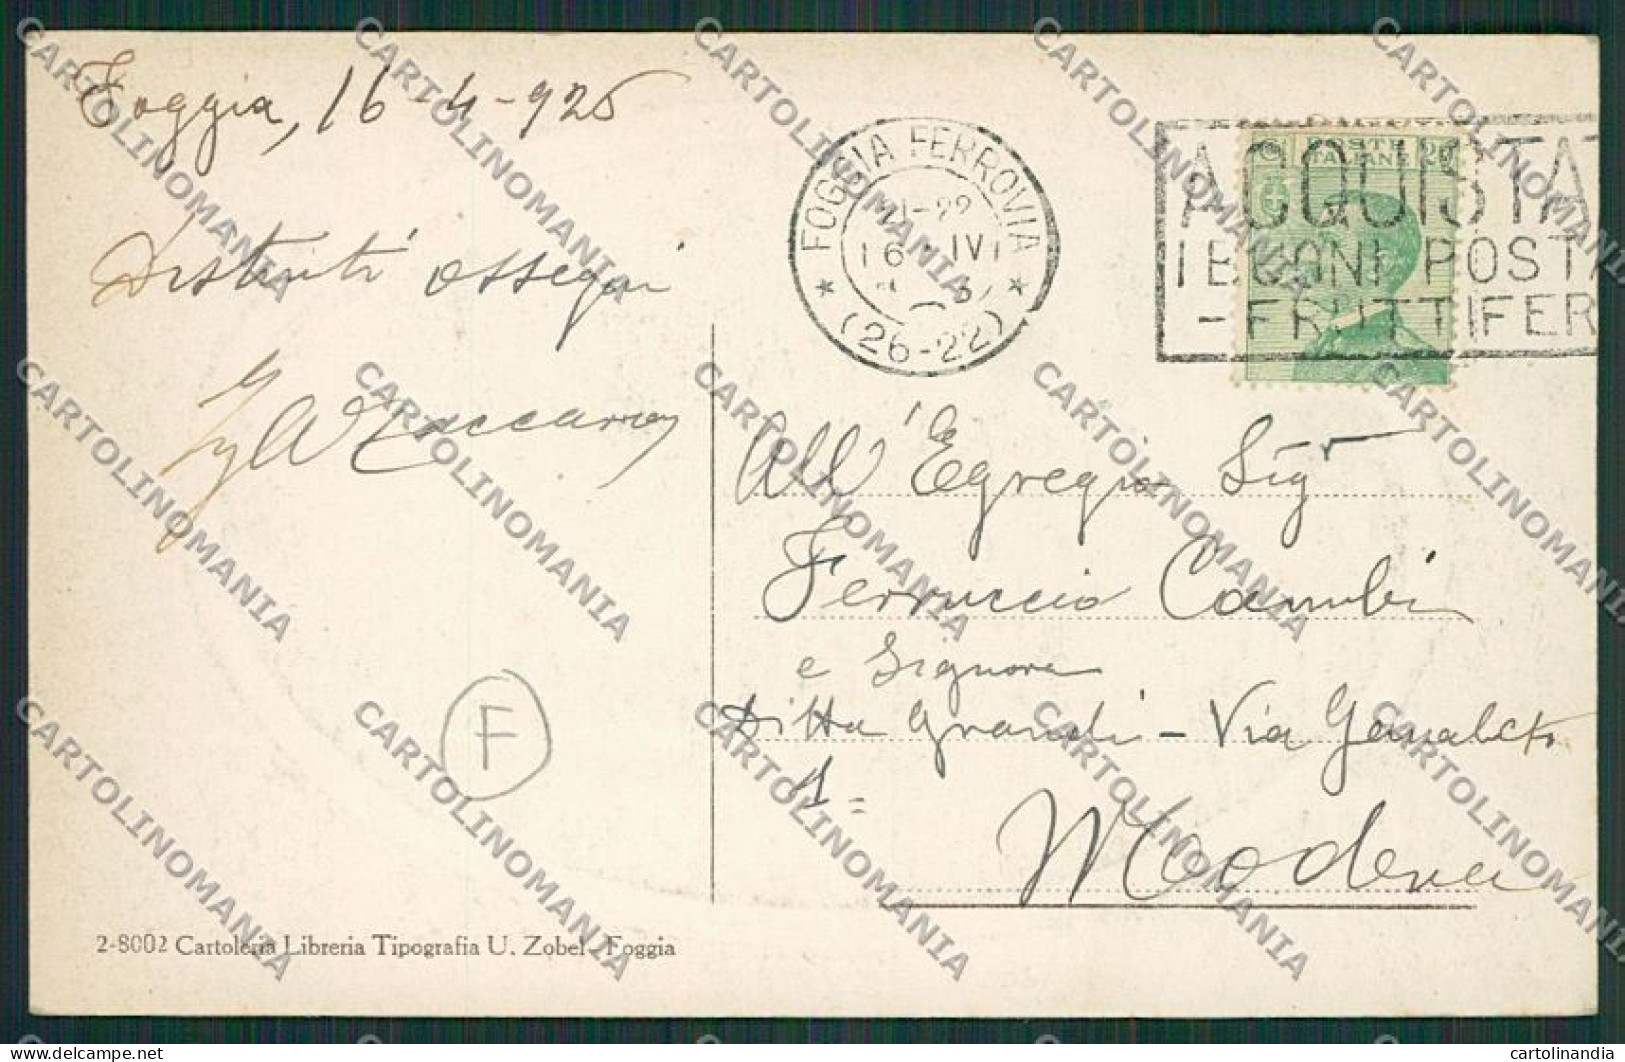 Foggia, 16-4-926
Distinti ossequi
Zaccaria
FOGGIA FERROVIA
21-22
16 · IV
(26-22)
ACQUISTA
I BUONI POSTA
-FRUTTIFER
POSTE
ITALIANE
All'Egregio Sigr
Ferruccio Cambi
e Signora
Ditta Grandi - Via
Modena
F
2-8002 Cartoleria Libreria Tipografia U. Zobel - Foggia
CARTOLINOMANIA
cartolinandia